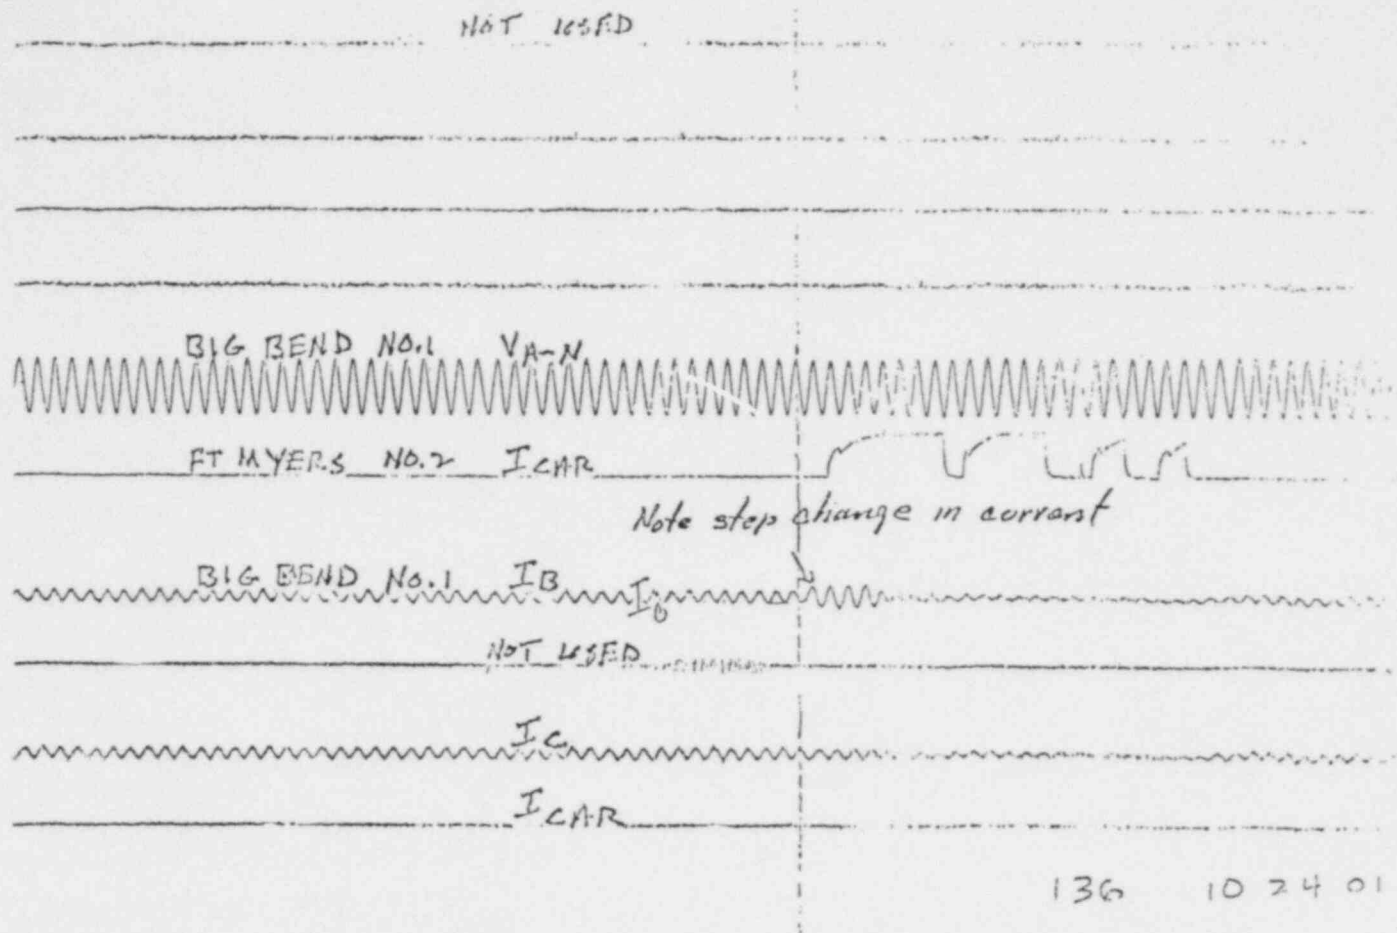 NOT USED
BIG BEND NO.1 VA-N
FT MYERS NO.2 ICAR
Note step change in current
BIG BEND No.1 IB I0
NOT USED
IC
ICAR
136 10 24 01